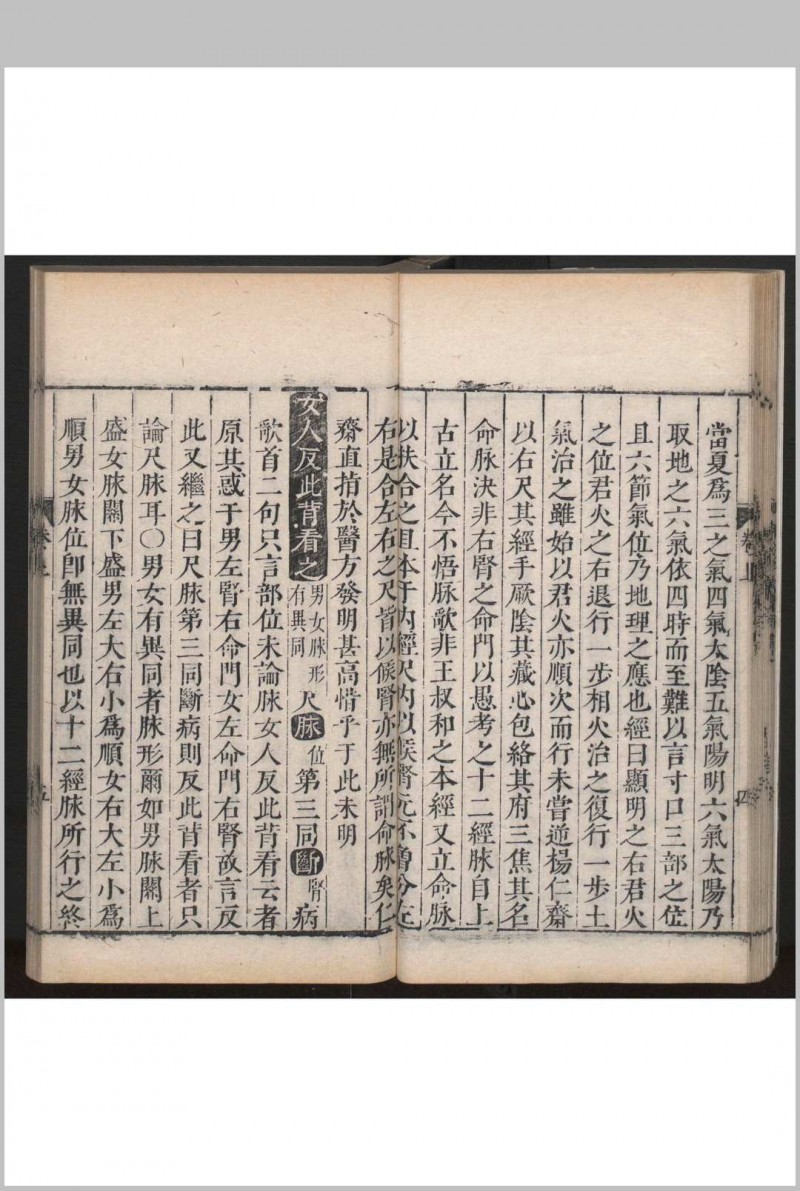 當夏爲三之氣四氣太陰五氣陽明六氣太陽乃
取地之六氣依四時而至難以言寸口三部之位
且六節氣位乃地理之應也經曰顯明之右君火
之位君火之右退行一步相火治之復行一步土
氣治之雖始以君火亦順次而行未嘗逆楊仁齋
以右尺其經手厥陰其藏心包絡其府三焦其名
命脉決非右腎之命門以愚考之十二經脉自上
古立名今不悟脉歌非王叔和之本經又立命脉
以扶合之且本于内經尺内以候腎元不曾分左
右是合左右之尺皆以候腎亦無所謂命脉矣仁
齋直指於醫方發明甚高惜乎于此未明
女人反此背看之男女脉形有異同尺脉位第三同斷腎病
歌首二句只言部位未論脉女人反此背看云者
原其惑于男左腎右命門女左命門右腎故言反
此又繼之曰尺脉第三同斷病則反此背看者只
論尺脉耳〇男女有異同者脉形爾如男脉關上
盛女脉關下盛男左大右小爲順女右大左小爲
順男女脉位卽無異同也以十二經脉所行之終